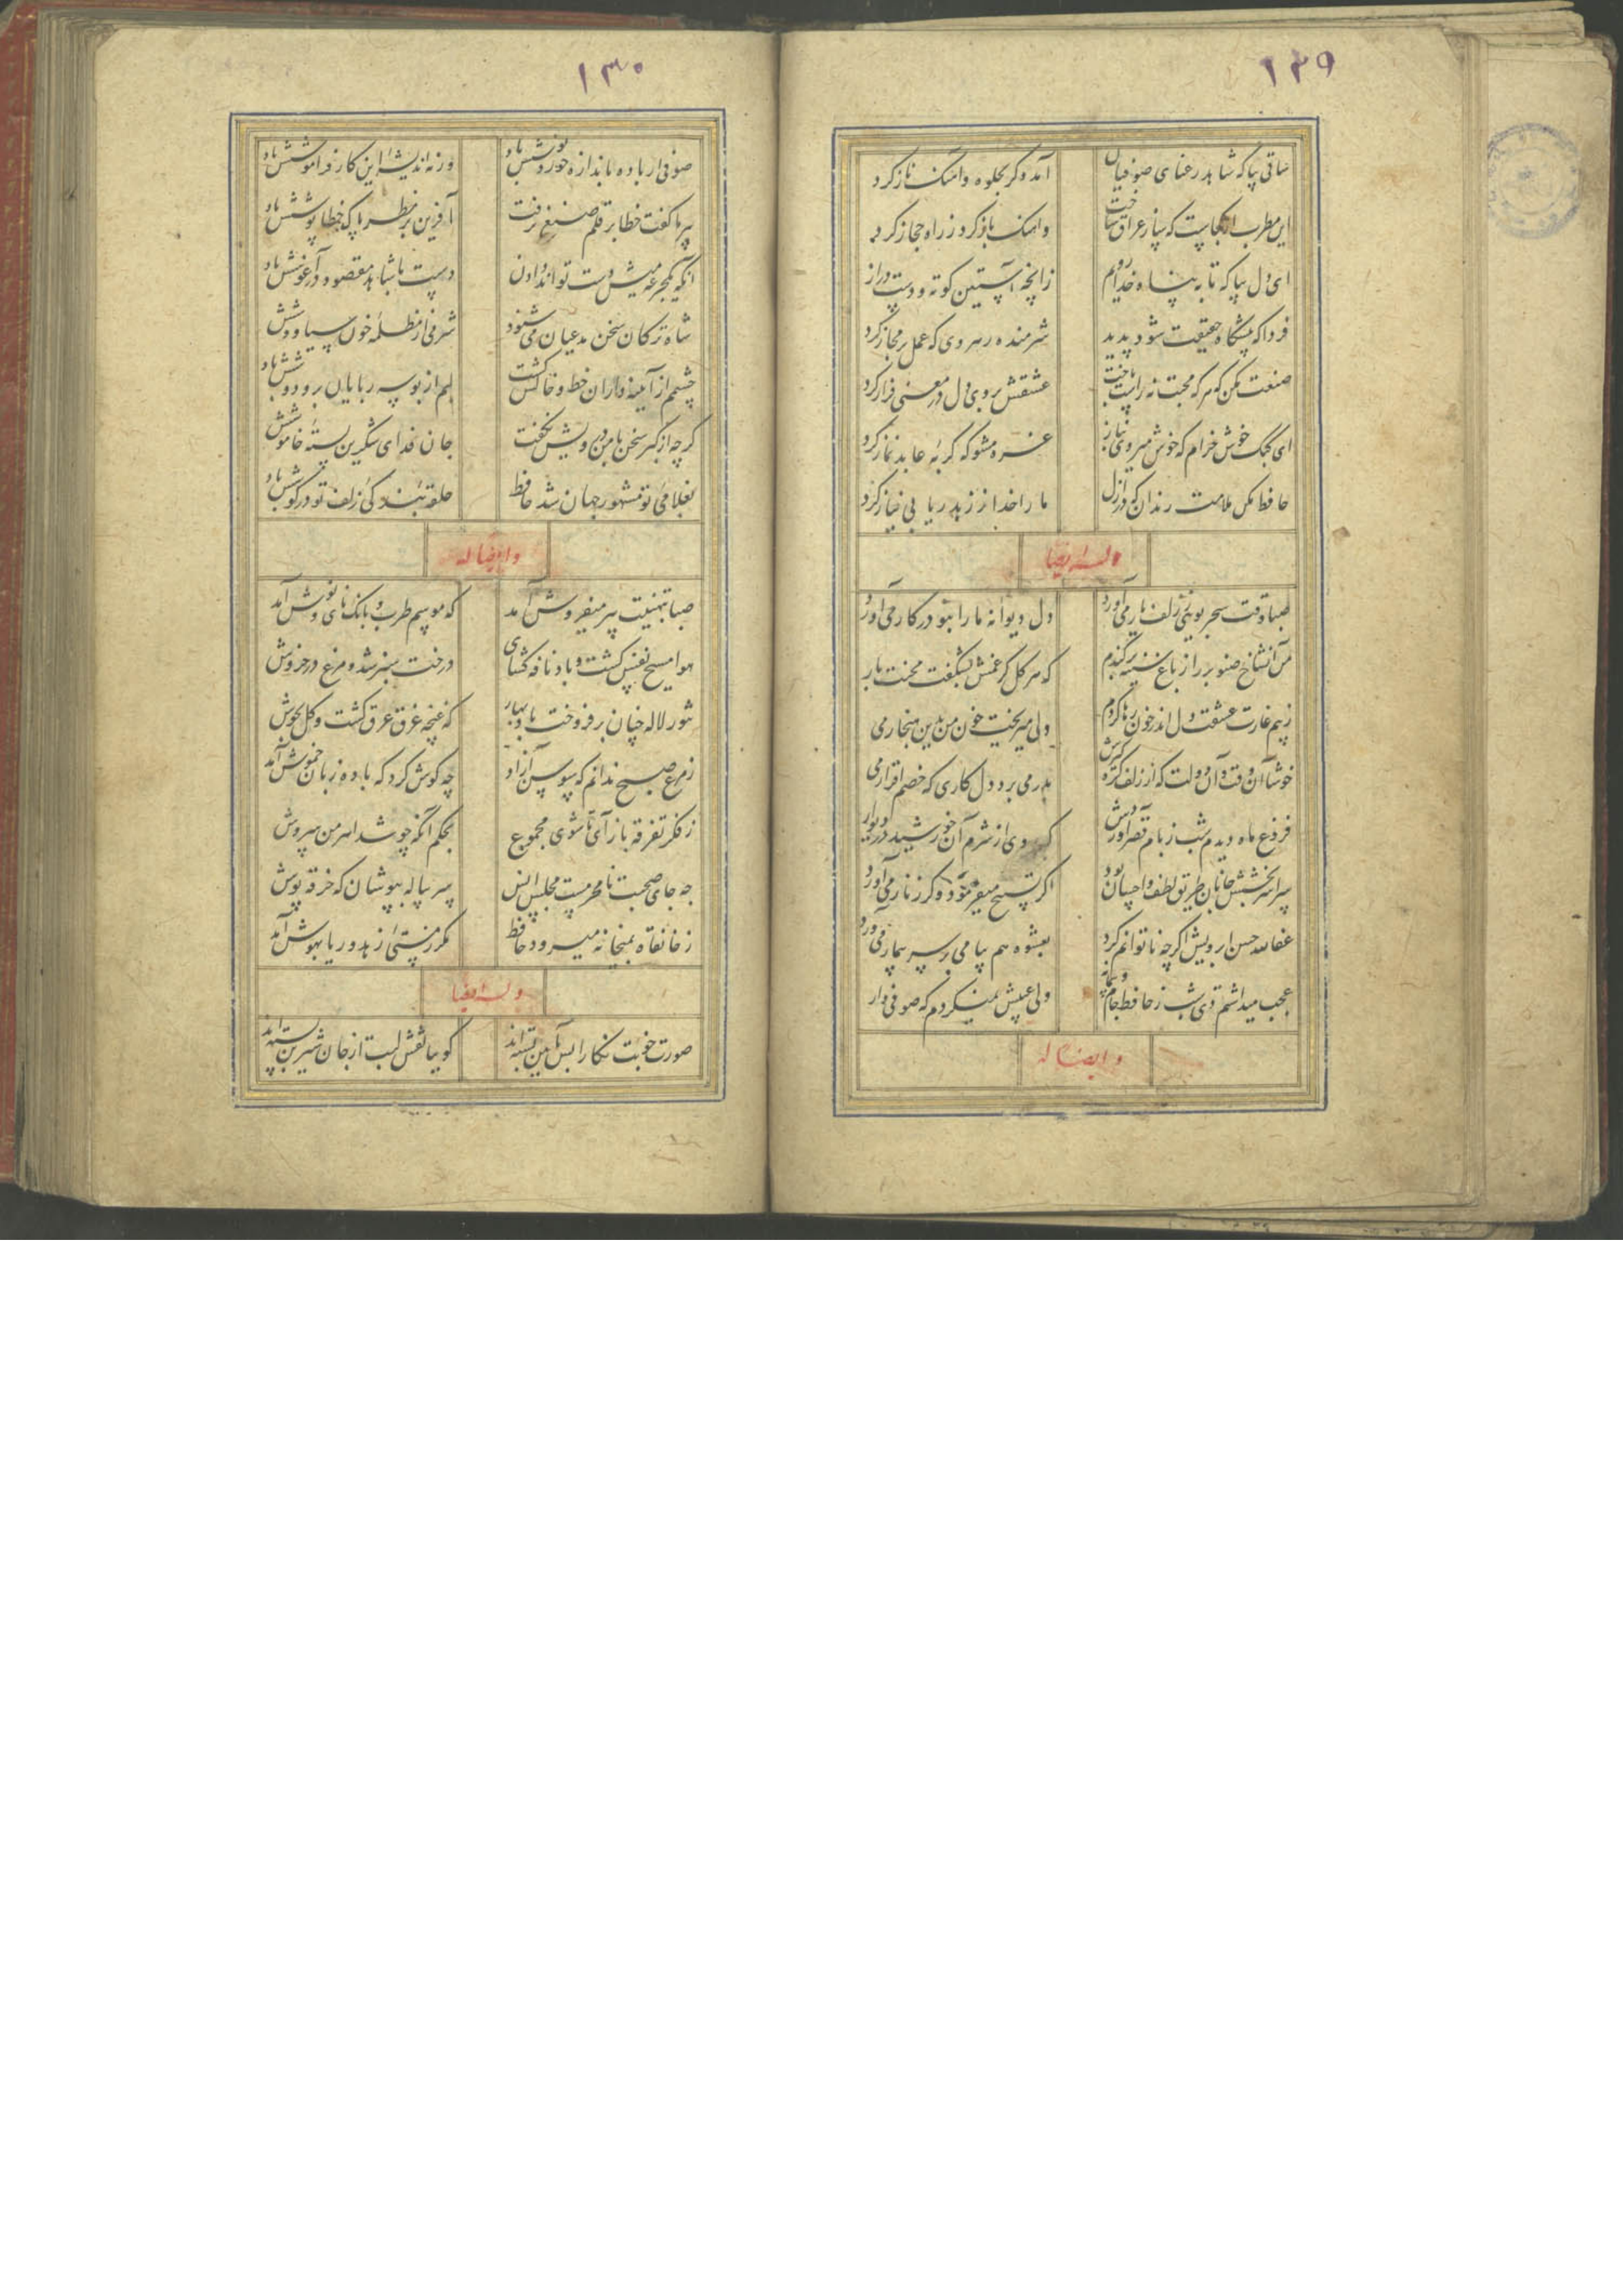 ۱۲۹
ساقی بیا که شاهد رعنای صوفیان
آمد دگر بجلوه و آهنگ ناز کرد
این مطرب از کجاست که ساز عراق ساخت
و آهنگ باز کرد ز راه حجاز کرد
ای دل بیا که تا به پناه خدا رویم
زانچه آستین کوته و دست دراز
فردا که پیشگاه حقیقت شود پدید
شرمنده رهروی که عمل بر مجاز کرد
صنعت مکن که هر که محبت نه راست باخت
عشقش بروی دل در معنی فراز کرد
ای کبک خوش خرام که خوش میروی بناز
غره مشو که گربه عابد نماز کرد
حافظ مکن ملامت رندان که در ازل
ما را خدا ز زهد ریا بی نیاز کرد
وله ایضا
صبا وقت سحر بویی ز زلف یار می آورد
دل دیوانه ما را بنو در کار می آورد
من آن شاخ صنوبر را ز باغ سینه برکندم
که هر گل کز غمش بشکفت محنت بار
ز بیم غارت عشقت دل اندر خون رها کردم
ولی میریخت خون من بدین هنجار می
خوشا آن وقت و آن دولت که از زلف گره گیرش
بدر می برد دل کاری که خصم اقرار می
فروغ ماه دیدم شب ز بام قصر او روشن
که روی از شرم آن خورشید در دیوار
سراسر بخشش جانان طریق لطف و احسان بود
اگر تسبیح میفرمود و گر زنار می آورد
عفا الله حسن ابرویش اگرچه ناتوانم کرد
بعشوه هم پیامی بر سر بیمار می آورد
عجب میداشتم دی شب ز حافظ جام و پیمانه
ولی عیبش نمیکردم که صوفی وار
و ایضا له
۱۳۰
صوفی ار باده باندازه خورد نوشش باد
ورنه اندیشه این کار فراموشش باد
پیر ما گفت خطا بر قلم صنع نرفت
آفرین بر نظر پاک خطا پوشش باد
آنکه یکجرعه می پیش دست تواند دادن
دست با شاهد مقصود در آغوشش باد
شاه ترکان سخن مدعیان می شنود
شرمی از مظلمه خون سیاووشش
چشمم از آینه داران خط و خالش گشت
لبم از بوسه ربایان بر و دوشش باد
گرچه از کبر سخن با من درویش نگفت
جان فدای شکرین پسته خاموشش
بغلامی تو مشهور جهان شد حافظ
حلقه بندگی زلف تو در گوشش باد
و ایضا له
صبا تهنیت پیر میفروش آمد
که موسم طرب و بانک نای و نوش آمد
هوا مسیح نفس گشت و باد نافه گشای
درخت سبز شد و مرغ در خروش
تنور لاله چنان برفروخت باد بهار
که غنچه غرق عرق گشت و گل بجوش
ز مرغ صبح ندانم که سوسن آزاد
چه گوش کرد که با ده زبان خموش آمد
ز فکر تفرقه باز آی تا شوی مجموع
بحکم آنکه چو شد اهرمن سروش
چه جای صحبت نامحرمست مجلس انس
سر پیاله بپوشان که خرقه پوش
ز خانقاه بمیخانه میرود حافظ
مگر ز مستی زهد و ریا بهوش آمد
وله ایضا
صورت خوبت نگارا بس بآیین بسته اند
گوییا نقش لبت از جان شیرین بسته اند